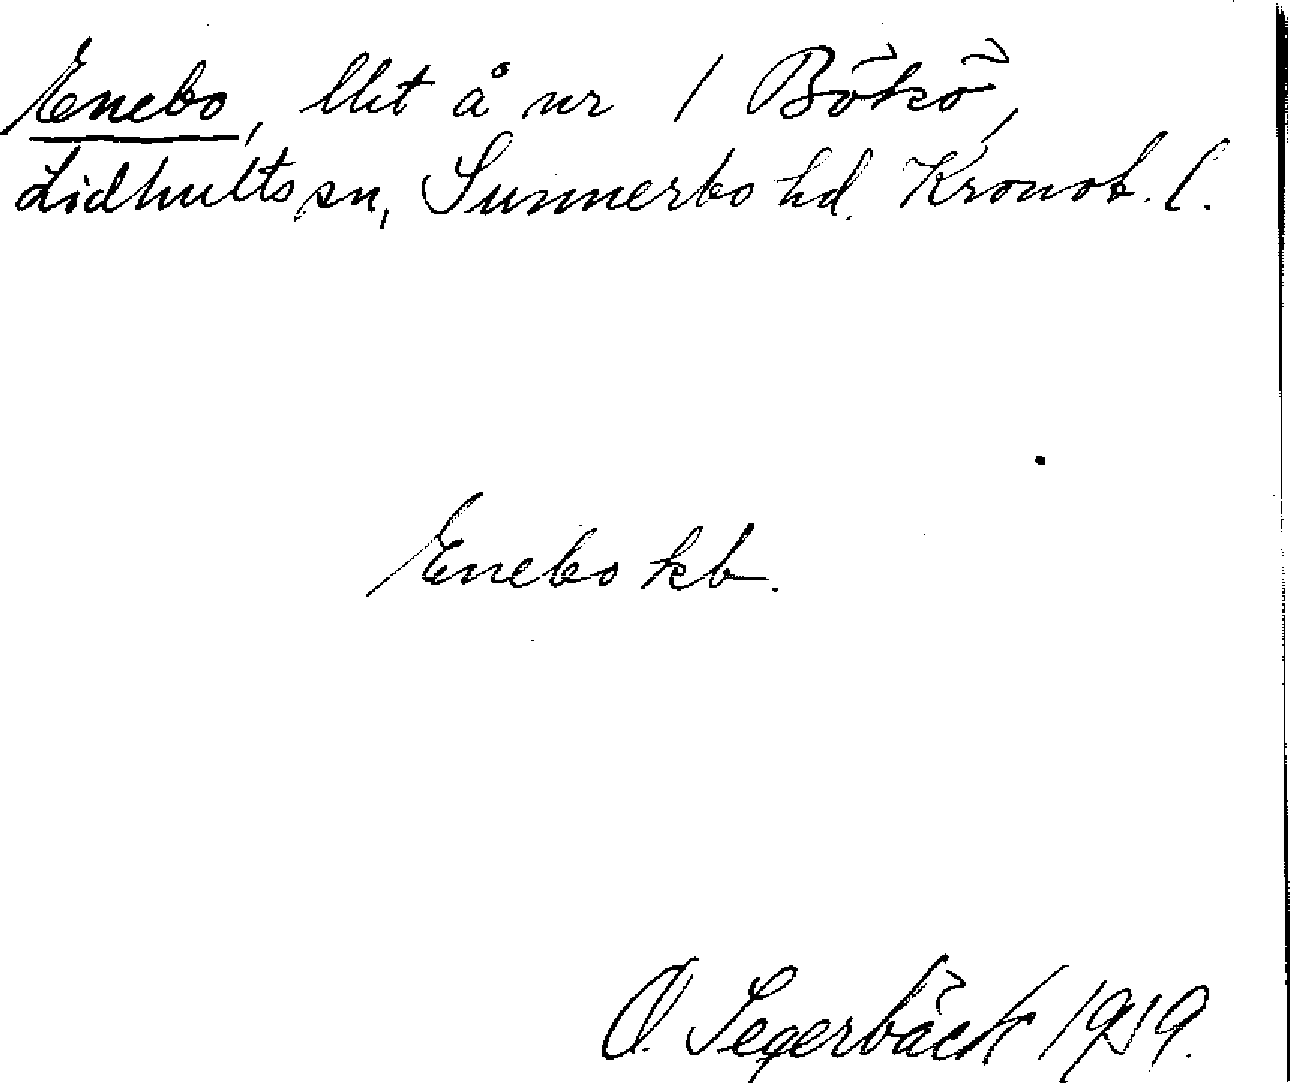 Enebo, lht å nr 1 Bökö,
Lidhults sn, Sunnerbo hd. Kronob. l.
Enebo kb.
O. Segerbäck 1919.